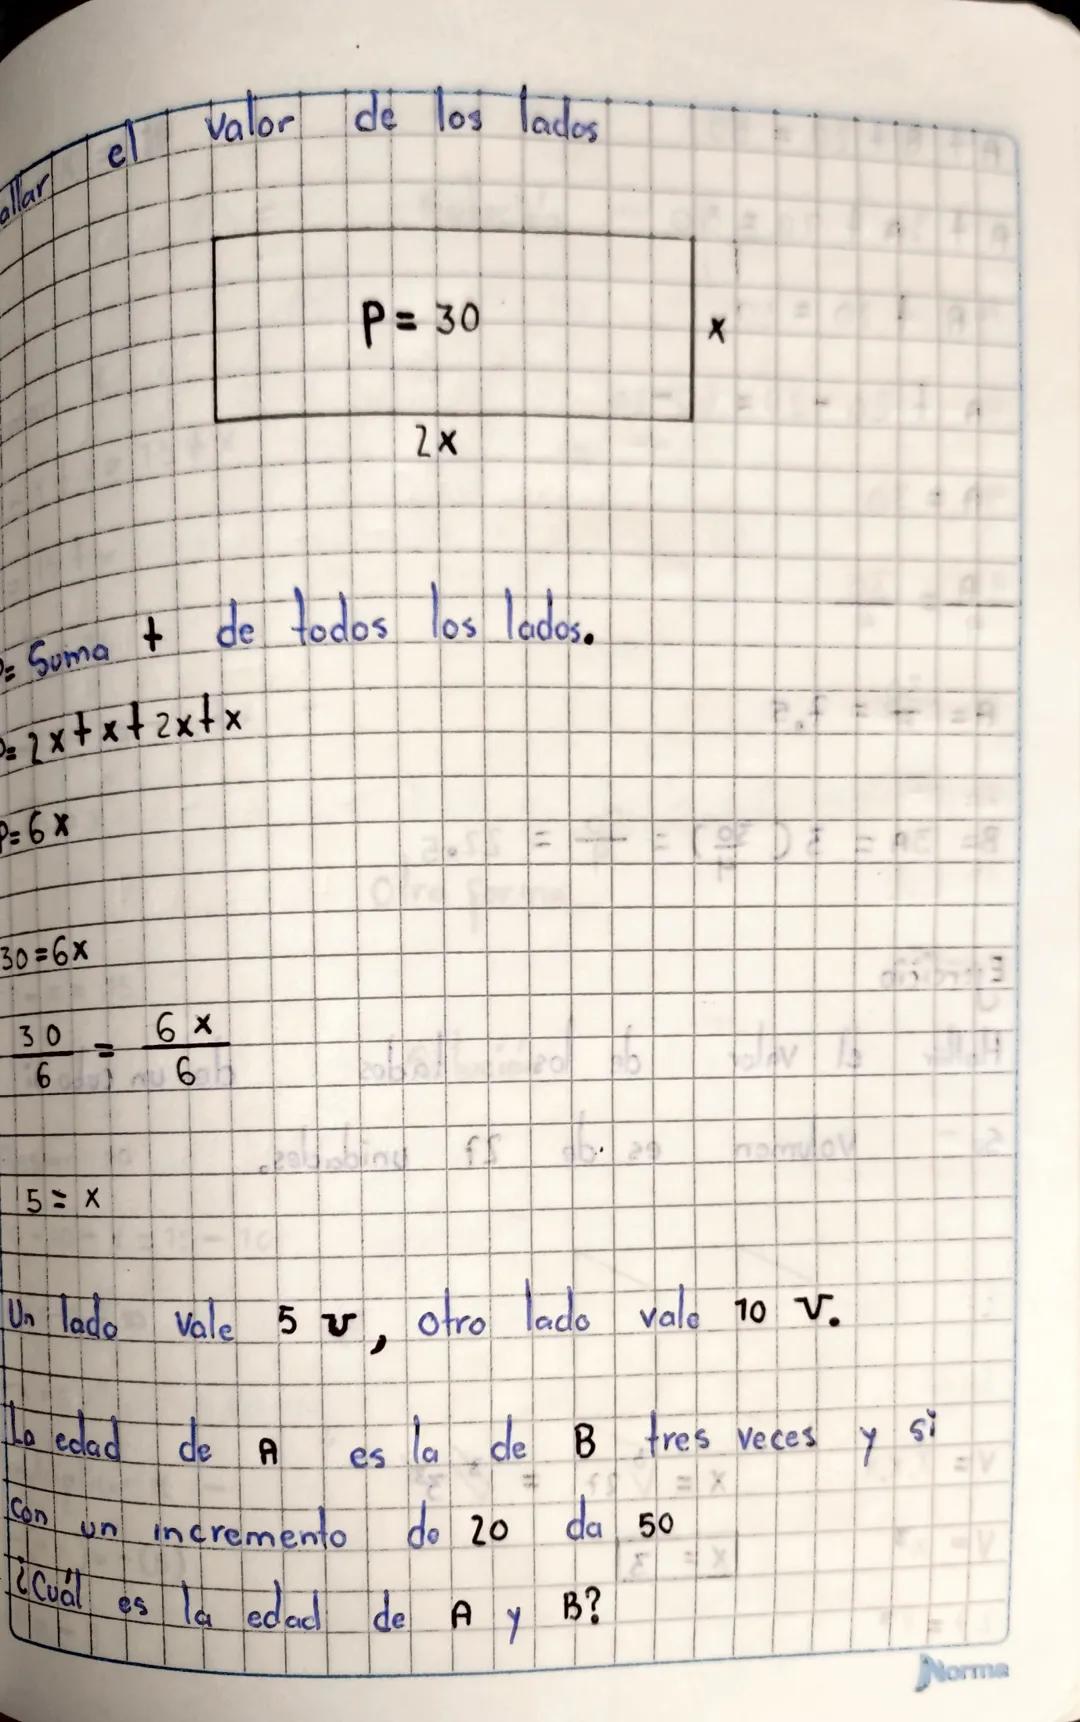 allar el valor de los lados
P= 30
x
2x
P= Suma + de todos los lados.
P= 2x+x+2x+x
P= 6x
30=6x
30/6 = 6x/6
5= x
Un lado vale 5 v, otro lado vale 10 v.
La edad de A es la de B tres veces y si
con un incremento de 20 da 50
¿Cuál es la edad de A y B?
Norma